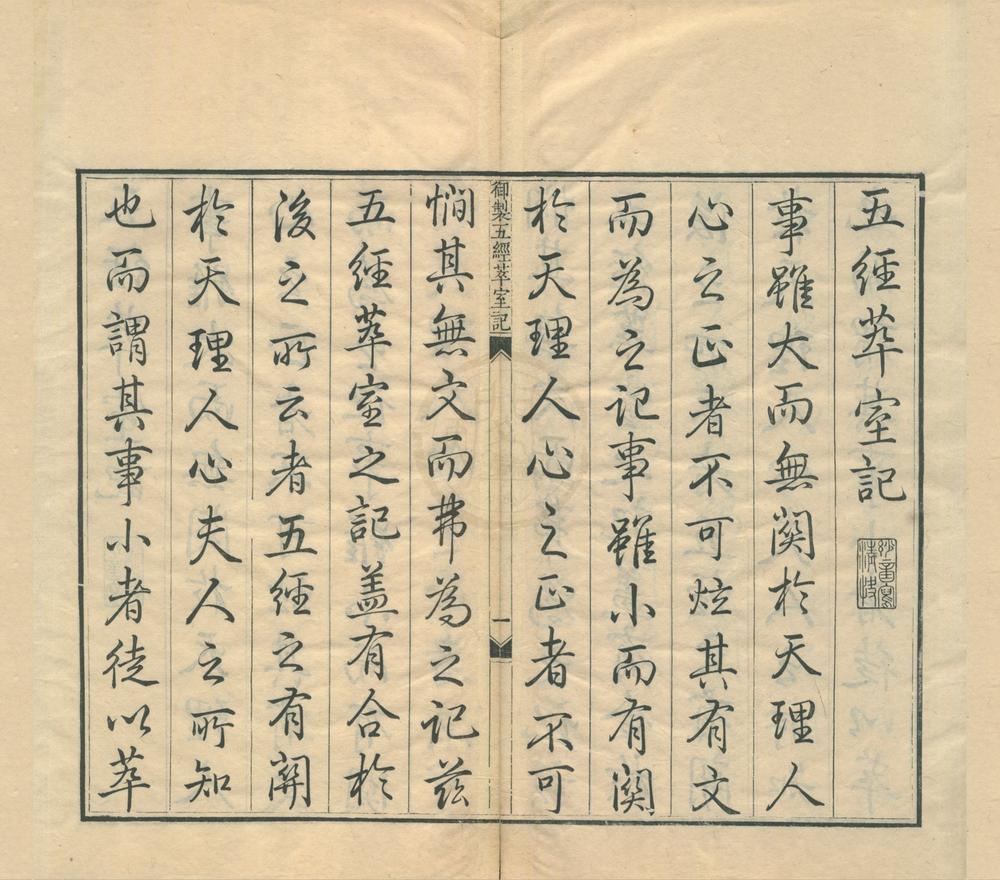 五經萃室記
事雖大而無関於天理人
心之正者不可炫其有文
而為之記事雖小而有関
於天理人心之正者不可
御製五經萃室記
一
憪其無文而弗為之記茲
五經萃室之記蓋有合於
後之所云者五經之有關
於天理人心夫人之所知
也而謂其事小者徒以萃